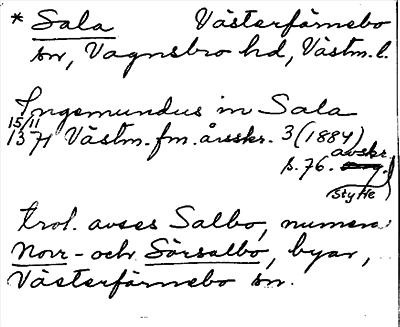 * Sala Västerfärnebo
sn, Vagnsbro hd, Västm. l.
Ingemundus in Sala
15/11
1371 Västm. fm. årsskr. 3 (1884)
avskr.
s. 76.
Styffe
trol. avses Salbo, numera
Norr- och Sörsalbo, byar,
Västerfärnebo sn.